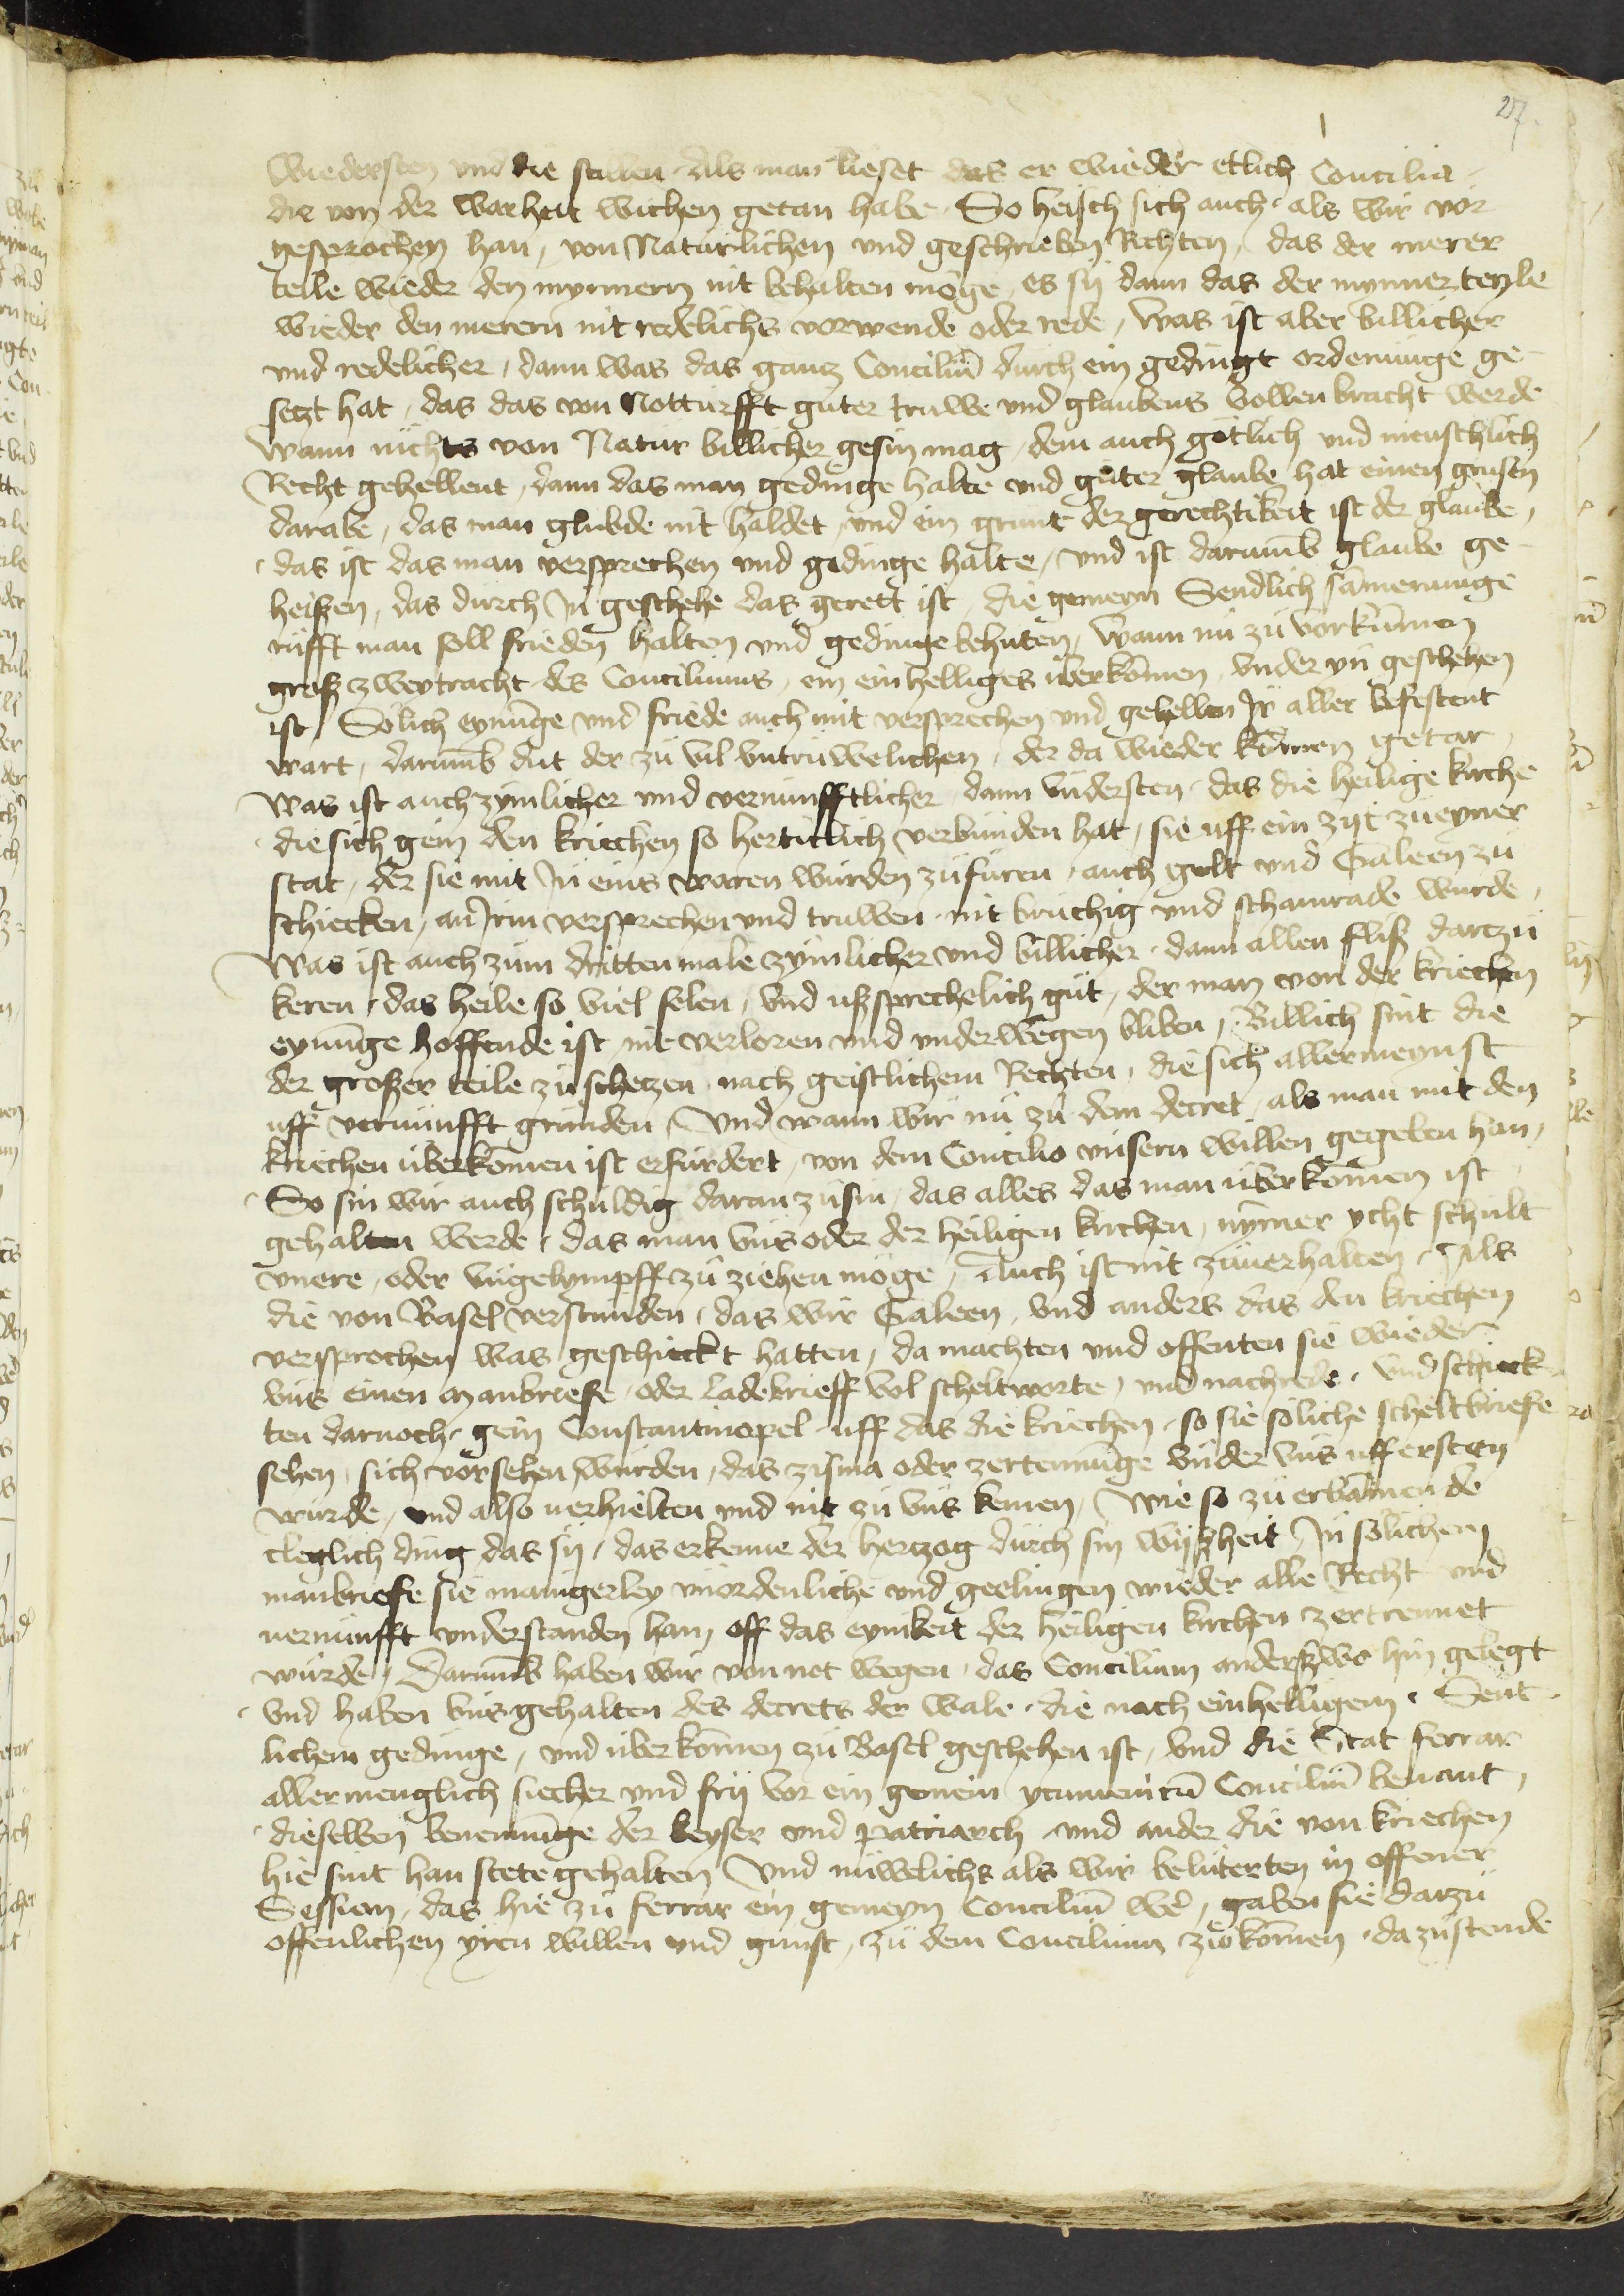 27.
Wiedersten und die stillen · Als man lieset das er wieder etlich Concilia
die von der warheit wichen getan habe · So heisch sich auch · als wir vor
gesprochen han, von Natürlichen und geschrieben Rechten, das der merer
teile wieder den mynnern nit behalten möge, es sÿ dann das der mynner teyle
wieder den merern nit redelichs vorwende oder rede, Was ist aber billicher
und redelicher, dann was das gancz Conciliū dürch ein gedingt ordenunge ge
setzt hat, das das von Notturfft guter truwe und glaubens vollenbracht werde
Wann nichts von Natur billicher gesin mag, dem auch götlich und menschlich
Recht gehellent, dann das man gedinge halte und guter glaube hat einen grusen
darabe, das man glubde nit haldet, und ein grunt der gerechtikeit ist der glaube,
das ist das man versprechen und gedinge halte, und ist darumb glaube ge
heißen, das durch In geschehe das gerett ist, die gemeyn Sendlich samenunge
rüfft man soll frieden halten und gedinge behuten, Wann nu zu vorkummen
groß zweytracht des Conciliums, ein einhelliges uberkōmen, under yn geschehen
ist, Solich eynūnge und friede auch mit versprechen und gehellen Ir aller befestent
wart, darumb dut der zu vil untruwelichen, der da wieder kōmen getar,
Was ist auch zymlicher und vernunfftlicher dann understen · das die heilige kirche
die sich gein den kriechen so herticlich verbunden hat, sie uff ein zijt zu eyner
stat, der sie mit In eins woren wurden zufuren, auch gelt und Galeen zu
schicken, an Irm versprechen und truwen nit bruchig und schamrade wurde,
Was ist auch zum dritten male zymlicher und billicher · dann allen fliß darczu
keren, das heile so viel selen, und ußsprechelich gut, der man von der kriechen
eynūnge hoffende ist, nit verloren und underwegen bliben, Billich sint die
der großer teile zu schetzen nach geistlichem Rechten, die sich allermeynst
uff vernunfft grunden, Und wann wir nu zu dem decret, als man mit den
kriechen uberkōmen ist erfurdert, von dem Concilio unsern willen gegeben han,
So sin wir auch schuldig daran zusin, das alles das man uberkōmen ist
gehalten werde, das man uns oder der heiligen kirchen, nymer ycht schult
unere, oder ungelympff zu ziehen möge, Auch ist nit zuuerhalten, Als
die von Basel verstunden, das wir Galeen, und anders das den kriechen
versprochen was geschickt hatten, da machten und offenten sie wieder
uns einen manbriefe oder ladebrieff vol scheltworte, und nachrede, und schick
ten darnoch gein Constantinopel uff das die kriechen, so sie soliche scheltbriefe
sehen, sich vorsehen wurden, das zisma oder zertennūnge under uns uff ersten
wurde, und also uerhielten und nit zu uns kemen, Wie so zu erbarmende
cleglich ding das sÿ, das erkenne der herczog durch sin wijßheit, In solichem
manbriefe sie mangerley unordenliche und geelingen wieder alle Recht und
uernunfft understanden han, off das eynikeit der heiligen kirchen zertrennet
wurde, Darumb haben wir von not wegen, das Concilium anderßwo hin gelegt
und haben uns gehalten des decrets der wale, die nach einhelligem Sent
lichem gedinge, und uberkōmen zu Basel geschehen ist, und die Stat ferrar
allermenglich siecher und frij vor ein gemein ycumenicū Conciliū benant,
dieselben benennūnge der keyser und patriarch und ander die von kriechen
hie sint han stete gehalten Und nuwelichs als wir beluterten in offener
Session, das hie zu ferrar ein gemeyn Conciliū we͛, gaben sie darzu
offenlichen yren willen und gunst, zu dem Concilium zu kōmen, da zustende